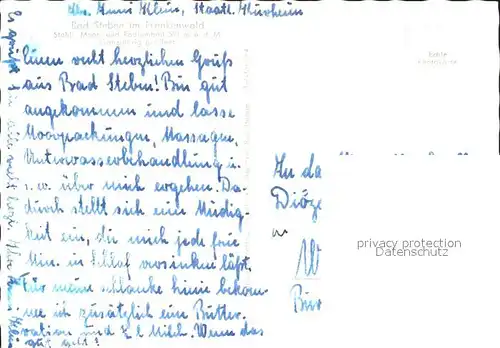 Abs. Anni Klein, Staatl. Kurheim
Bad Steben im Frankenwald
Stahl-, Moor- und Radiumbad
Einen recht herzlichen Gruß
aus Bad Steben! Bin gut
angekommen und lasse
Moorpackungen, Massagen,
Unterwasserbehandlung u.
s. w. über mich ergehen. Da-
durch stellt sich eine Müdig-
keit ein, die mich jede freie
Min. in Schlaf versinken läßt.
Für meine schlanke Linie bekom-
me ich zusätzlich ein Butter
ration und ½ l Milch. Wenn das
gut geht!
Es grüßt Sie alle recht herzl. Ihre Anni Klein
Echte
An da
Diöze
W
Bür
privacy protection
Datenschutz